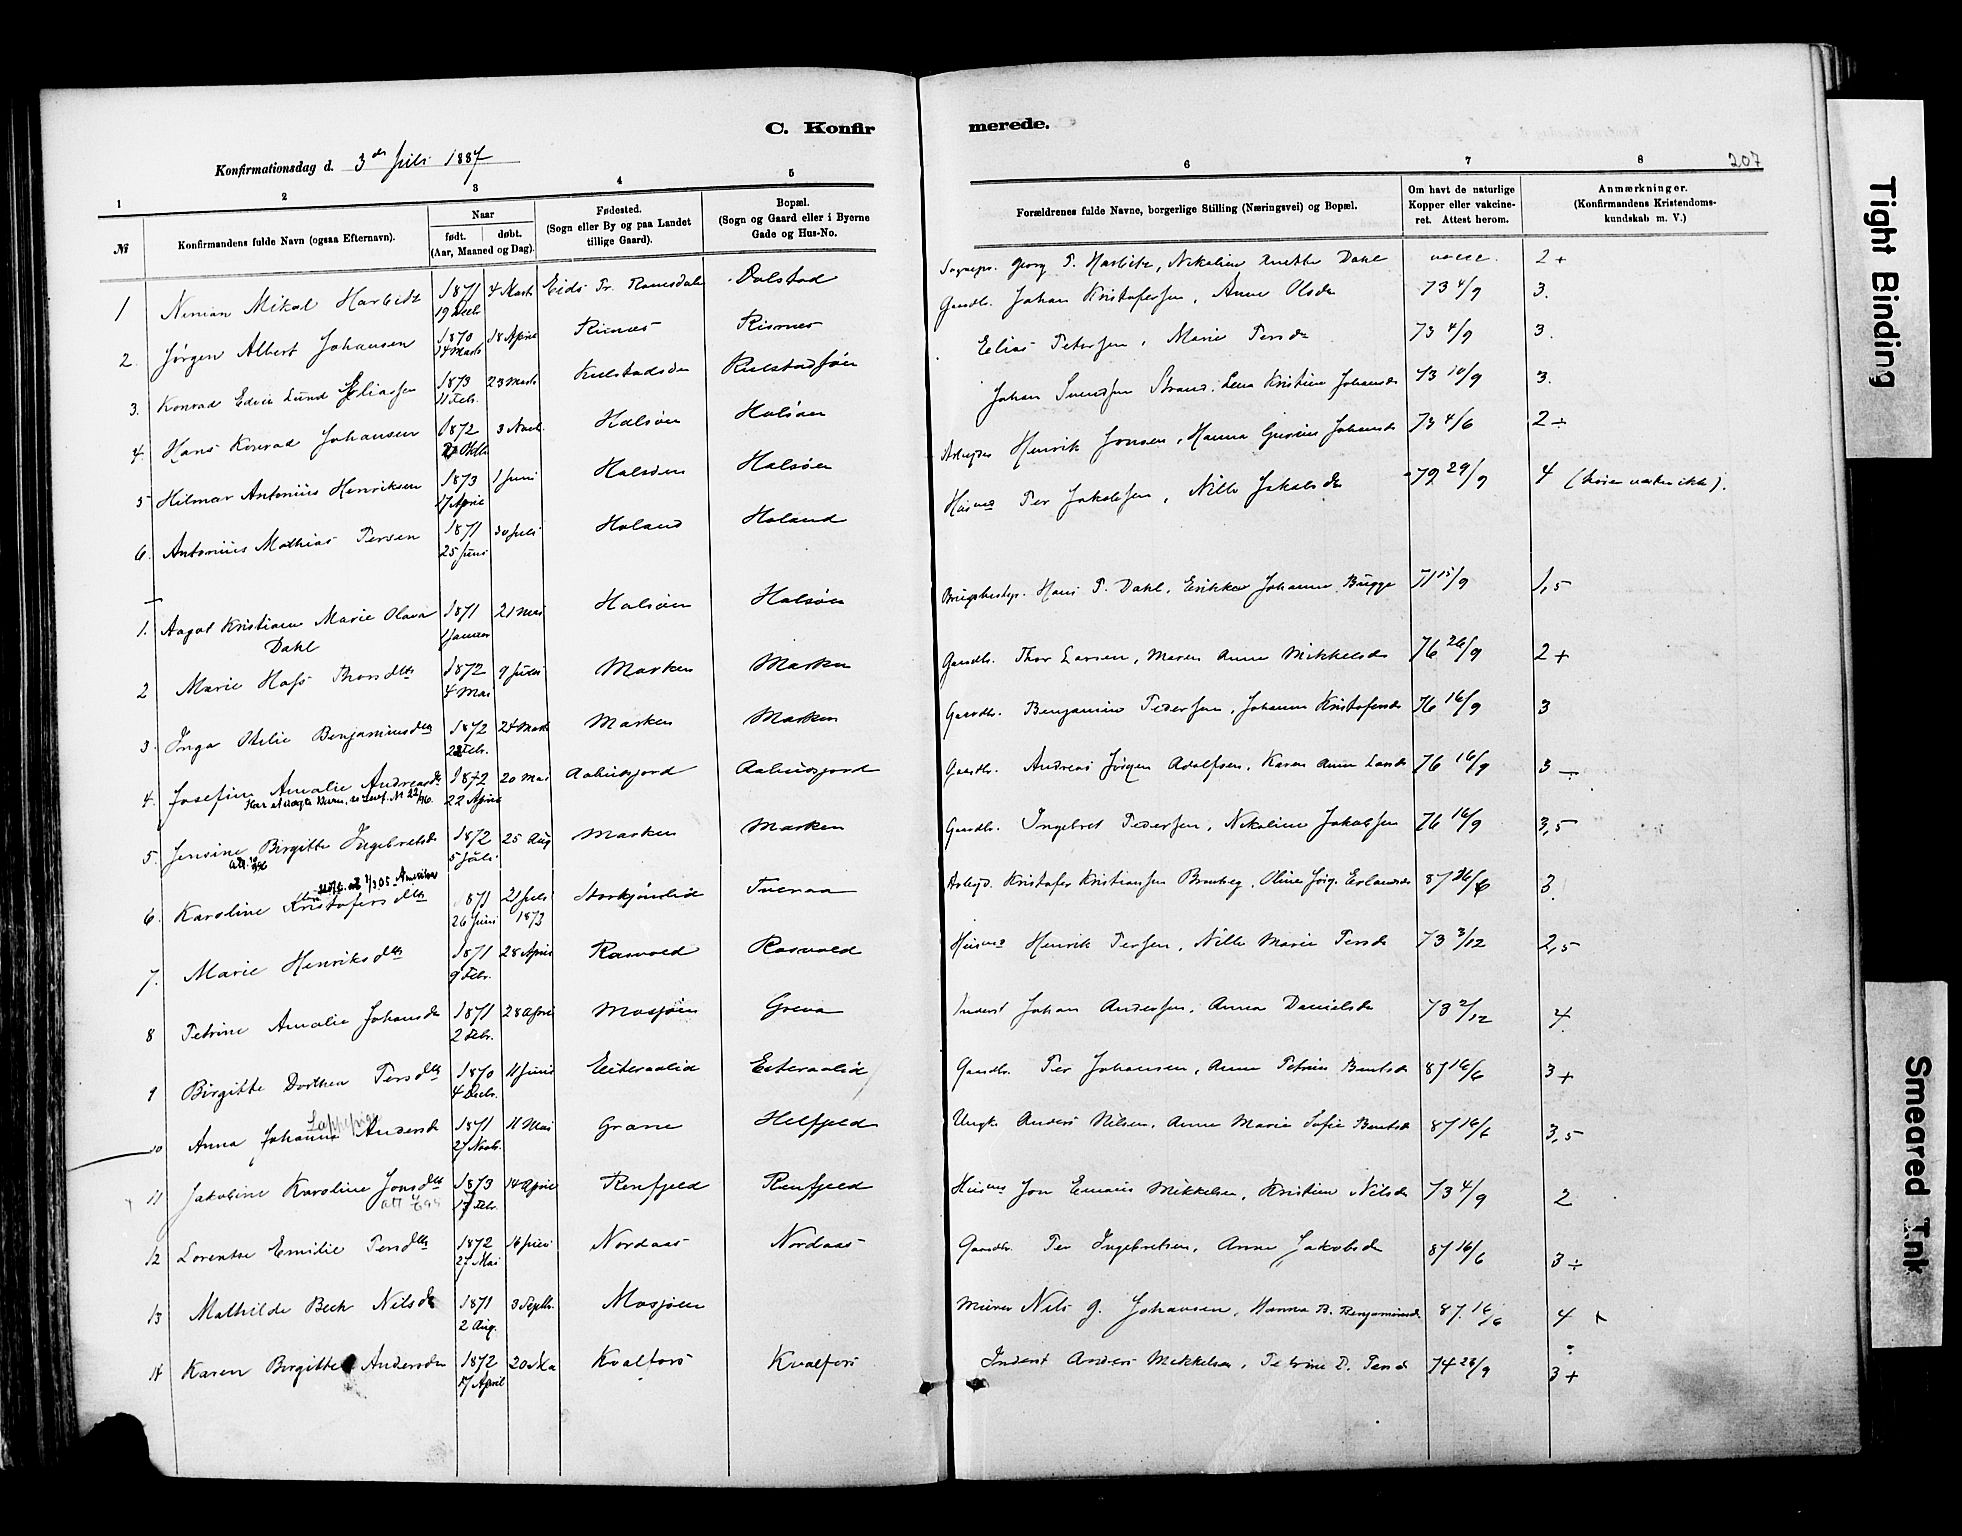 C. Konfirmerede.
207
Konfirmationsdag d. 3de Juli 1887
1 2 3 4 5 6 7 8
№
Konfirmandens fulde Navn (ogsaa Efternavn).
Naar
født. døbt.
(Aar, Maaned og Dag).
Fødested.
(Sogn eller By og paa Landet
tillige Gaard).
Bopæl.
(Sogn og Gaard eller i Byerne
Gade og Hus-No.
Forældrenes fulde Navne, borgerlige Stilling (Næringsvei) og Bopæl.
Om havt de naturlige
Kopper eller vakcine-
ret. Attest herom.
Anmærkninger.
(Konfirmandens Kristendoms-
kundskab m. V.)
1 Ninian Mikal Harbitz 1871 19 Decb. 4 Marts Eids Pr. Romsdalen Dolstad Sognepr. Georg P. Harbitz, Nikoline Anette Dahl 2+
2. Jørgen Albert Johansen 1870 14 Marts 18 April Risnes Risnes Gaardbr. Johan Kristofersen, Anne Olsdr 73 4/9 3.
3. Konrad Edvin Lund Eliassen 1873 11 Febr. 23 Marts Kulstadsøen Kulstadsjøen Elias Petersen, Marie Persdr 73 4/9 3.
4. Hans Konrad Johansen 1872 Oktbr 3 Novb. Halsøen Halsøen Johan Svendsen Strand, Lena Kristine Johansdr 73 10/9 3.
5 Hilmar Antonius Henriksen 1873 17 April 1 Juni Halsøen Halsøen Arbeider Henrik Jonsen, Hanna Gurine Johansdr 73 4/6 2÷
6. Antonius Mathias Persen 1871 25 Juni 30 Juli Holand Holand Husmd Per Jakobsen, Nille Jakobsdr 79 29/9 4
1. Aagot Kristiane Marie Olava Dahl 1871 1 Januar 21 Mai Halsøen Halsøen Brugsbestyr. Hans P. Dahl, Erikka Johanne Bugge 71 15/9 1,5
2 Marie Hofs Thorsdtr 1872 4 Mai 9 Juni Marken Marken Gaardbr. Thor Larsen, Maren Anne Mikkelsdr 76 26/9 2+
3. Inga Otelie Benjaminsdtr 1872 Febr. 24 Marts Marken Marken Gaardbr. Benjamin Pedersen, Johanna Kristofersdr 76 16/9 3
4. Josefine Amalie Andreasdr 1872 22 April 20 Mai Aakvigjord Aakvigjord Gaardbr. Andreas Jørgen Adolfsen, Karen Anne Larsdr 76 16/9 3÷
5. Jensine Birgitte Ingebretsdr 1872 5 Juli 25 Aug Marken Marken Gaardbr. Ingebret Pedersen, Nikoline Jakobsen 76 16/9 3,5
6. Karoline Kristofersdtr 1871 26 Juni 21 Juli 1873 Storkjønlid Tveraa Arbejd. Kristofer Kristiansen Bromberg, Oline Jørg. Erlandsdr 87 26/6 3.
7. Marie Henriksdtr 1871 9 Febr. 28 April Rosvold Rosvold Husmd Henrik Persen, Nille Marie Persdr 73 3/12 2,5
8 Petrine Amalie Johansdr 1871 2 Febr. 28 April Mosjøen Greva Inderst Johan Andersen, Anna Danielsdr 73 2/12 4.
9 Birgitte Dorthea Persdtr 1870 4 Decbr. 11 Juni Eiteraalid Eiteraalid Gaardbr. Per Johansen, Anne Petrine Bentsdr 87 16/6 3+
Lappepige
10 Anna Johanna Andersdr 1871 27 Novb. 11 Mai Grane Helfjeld Ungk. Anders Nilsen, Anne Marie Sofie Bentsdr 87 16/6 3,5
11 Jakobine Karoline Jonsdtr 1873 17 Febr. 14 April Renfjeld Renfjeld Husmd Jon Emaus Mikkelsen, Kristine Nilsdr 73 4/9 2
12 Lorentse Emilie Persdtr 1872 27 Mai 16 Juni Nordaas Nordaas Gaardbr. Per Ingebretsen, Anne Jakobsdr 87 16/6 3÷
13 Mathilde Bech Nilsdr 1871 2 Aug. 3 Septbr. Mosjøen Murer Nils G. Johansen, Hanna B. Benjaminsdr 87 16/6 4 +
14 Karen Birgitte Andersdr 1872 17 April 20 Mai Kvalfors Kvalfors Inderst Anders Mikkelsen, Petrine D. Persdr 74 28/9 3+
Tight Binding
Smeared Ink